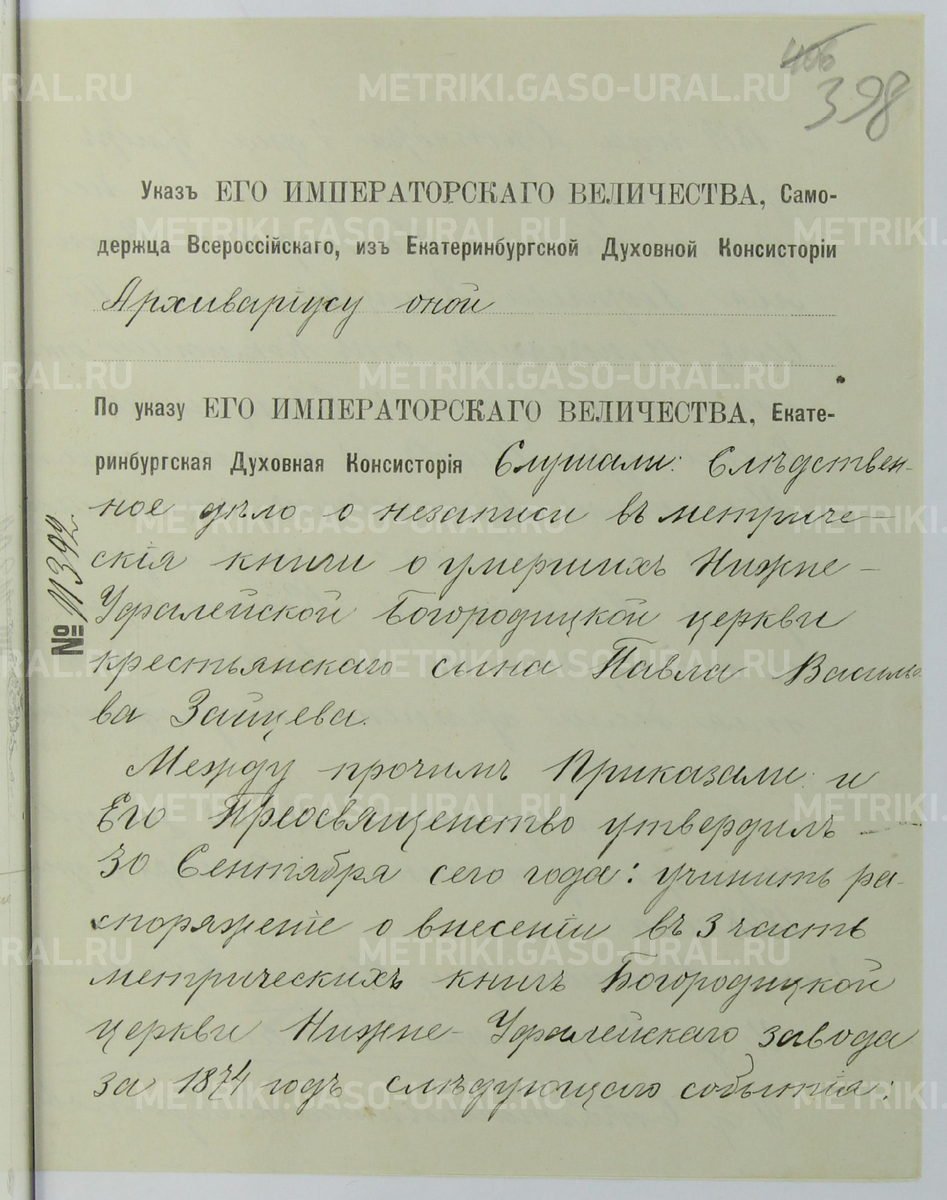 406
398
Указъ ЕГО ИМПЕРАТОРСКАГО ВЕЛИЧЕСТВА, Само-
держца Всероссійскаго, изъ Екатеринбургской Духовной Консисторіи
Архиваріусу оной
По указу ЕГО ИМПЕРАТОРСКАГО ВЕЛИЧЕСТВА, Екате-
ринбургская Духовная Консисторія Слушали: Слѣдствен-
ное дѣло о незаписи въ метриче-
скія книги о умершихъ Нижне-
Уфалейской Богородицкой церкви
крестьянскаго сына Павла Василье-
ва Зайцева.
№ 11392
Между прочимъ Приказали: и
Его Преосвященство утвердилъ
30 Сентября сего года: учинить ра-
споряженіе о внесеніи въ 3 часть
метрическихъ книгъ Богородицкой
церкви Нижне-Уфалейскаго завода
за 1874 годъ слѣдующаго событія:
METRIKI.GASO-URAL.RU